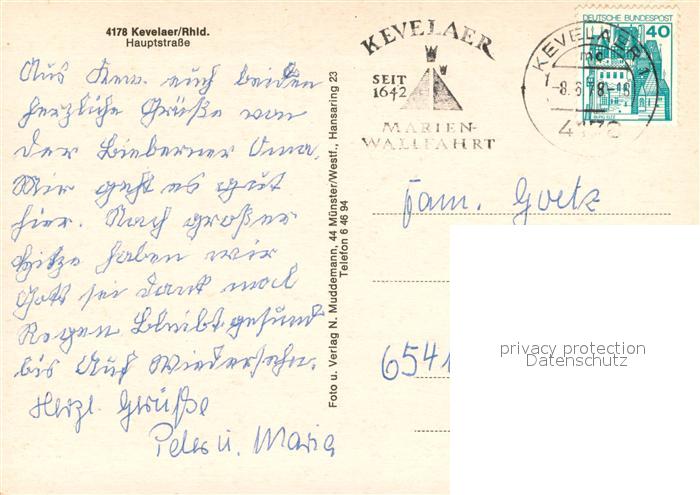 4178 Kevelaer/Rhld.
Hauptstraße
Aus Kev. euch beiden
herzliche Grüße von
der Bieberner Oma.
Mir geht es gut
hier. Nach großer
Hitze haben wir
Gott sei Dank mal
Regen Bleibt gesund
bis Auf Wiedersehn.
Herzl. Grüße
Peter u. Maria
Foto u. Verlag N. Muddemann, 44 Münster/Westf., Hansaring 23
Telefon 6 46 94
KEVELAER
SEIT
1642
MARIEN-
WALLFAHRT
KEVELAER 1
-8.6.78-18
4178
DEUTSCHE BUNDESPOST
40
BURG ELTZ
Fam. Goetz
6541
privacy protection
Datenschutz